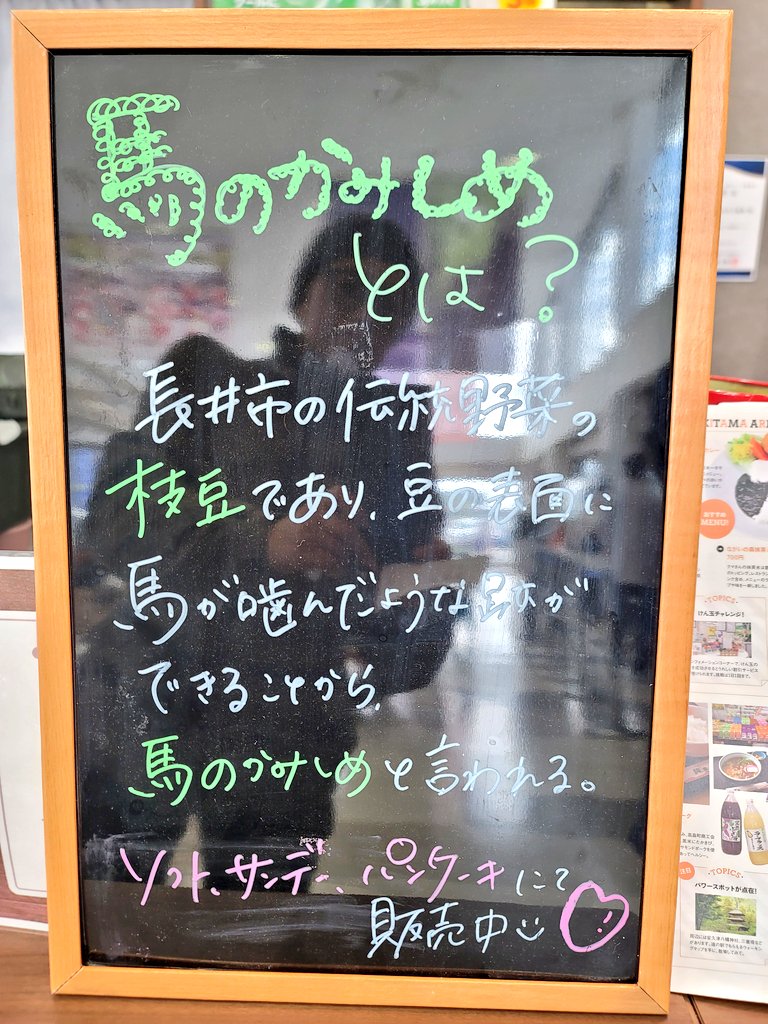 馬のかみしめ
とは?
長井市の伝統野菜の
枝豆であり、豆の表面に
馬が噛んだような跡が
できることから、
馬のかみしめと言われる。
ソフト、サンデー、パンケーキにて
販売中
KITAMA AR
おすすめ
MENU!
700円
TOPICS
けん玉チャレンジ!
TOPICS
パワースポットが点在!